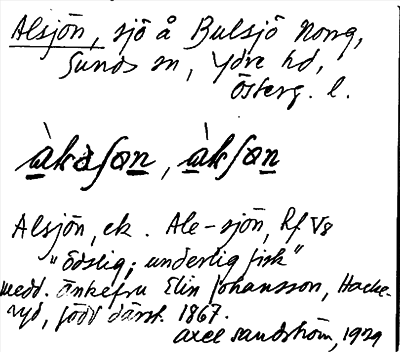 Alsjön, sjö å Bulsjö Norrg,
Sunds sn, Ydre hd,
Österg. l.
àkaʃon, àkʃon
Alsjön, ek. Ale-sjön, Rf V8
"ödslig; underlig fisk"
medd. änkefru Elin Johansson, Hacke-
ryd, född därst. 1867.
Axel Sandström, 1929